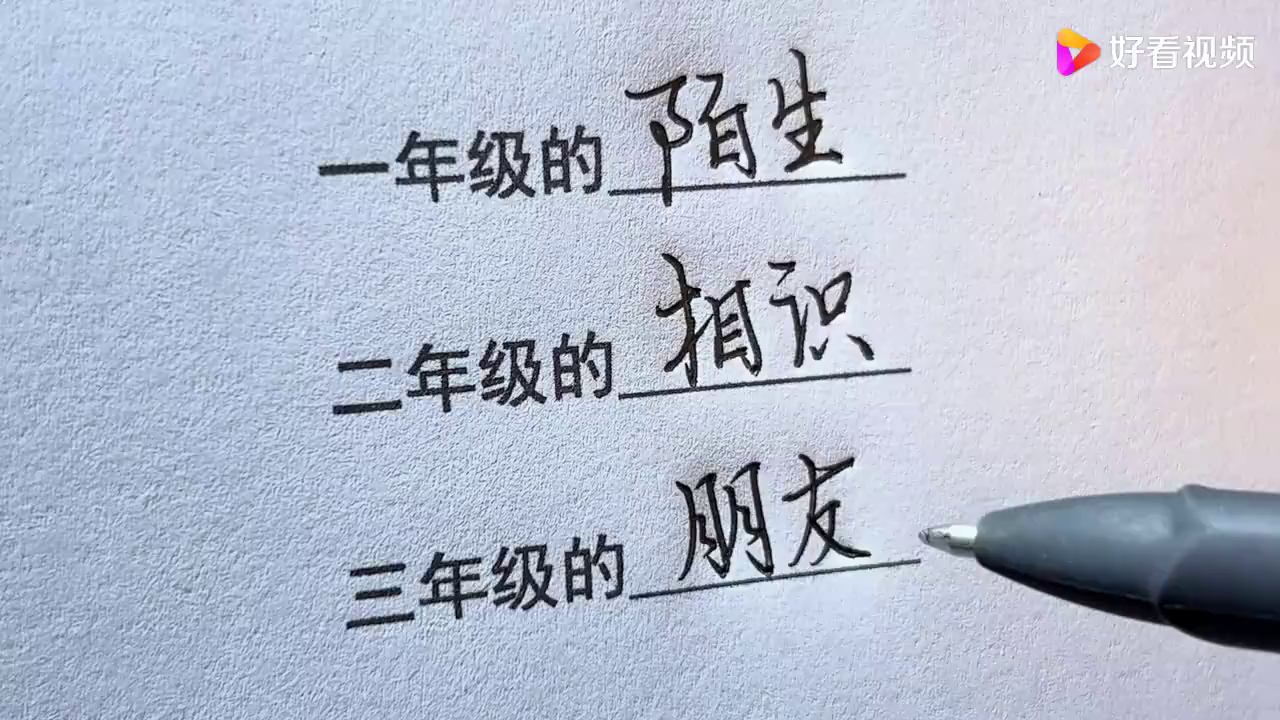 好看视频
一年级的陌生
二年级的相识
三年级的朋友